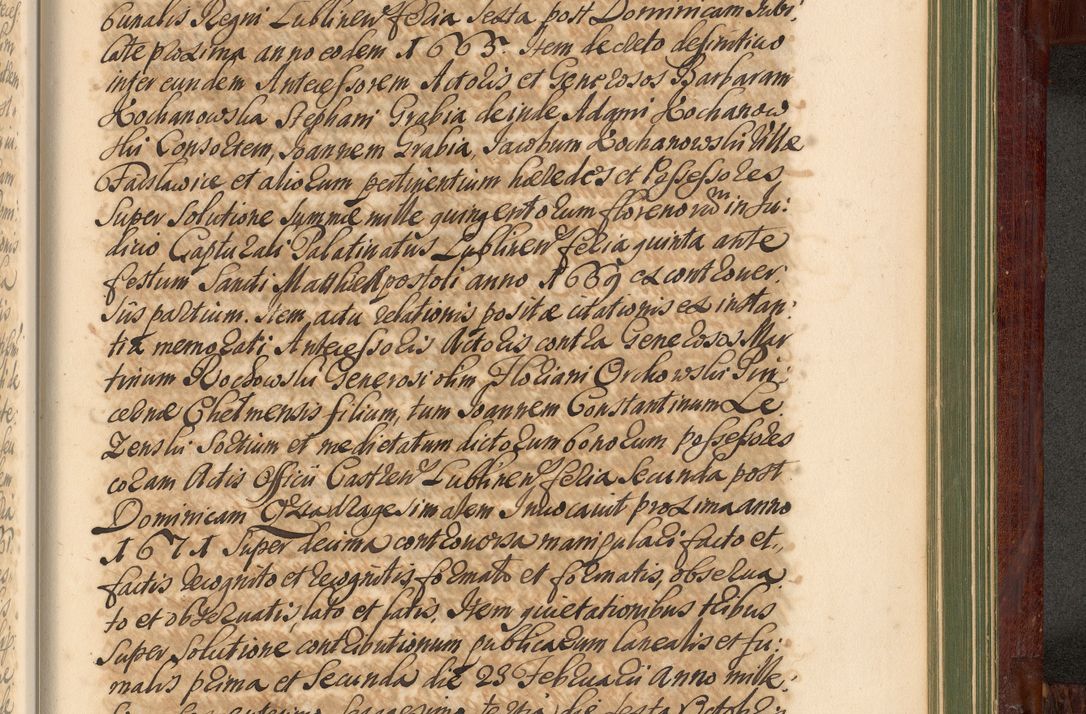 bunalis Regni Lublinen feria sexta post Dominicam Jubi:
late proxima anno eodem 1663. Item decreto definitivo
inter eundem Antecessorem Actoris et Generosos Barbaram
Kochanowska Stephani Grabia deinde Adami Kochanow
ski Consortem, Joannem Grabia, Jacobum Kochanowski Villæ
Faislawice et aliorum pertinentium hæredes et Possessores
super solutione summæ mille quingentorum florenorum in Ju:
dicio Capturali Palatinatus Lublinen feria quinta ante
festum Sancti Matthei Apostoli anno 1669 ex controver:
siis partium. Item, actu relationis positæ citationis ex instan:
tia memorati Antecessoris Actoris contra Generosos Mar
tinum Rochowski Generosi olim Floriani Orchowski Pin:
cernæ Chelmensis filium, tum Joannem Constantinum Le
zenski Sortium et medietatum dictorum bonorum possessores
coram Actis Officii Castren Lublinen feria secunda post
Dominicam Quadragesimalem Invocavit proxima anno
1671 super decima controversa manipulari facto et,
factis recognito et recognitis formato et formatis, observa
to et observatis, lato et latis. Item quietationibus tribus
super solutione contributionum publicarum lanealis et fu:
malis prima et secunda die 23 Februarii Anno mille: